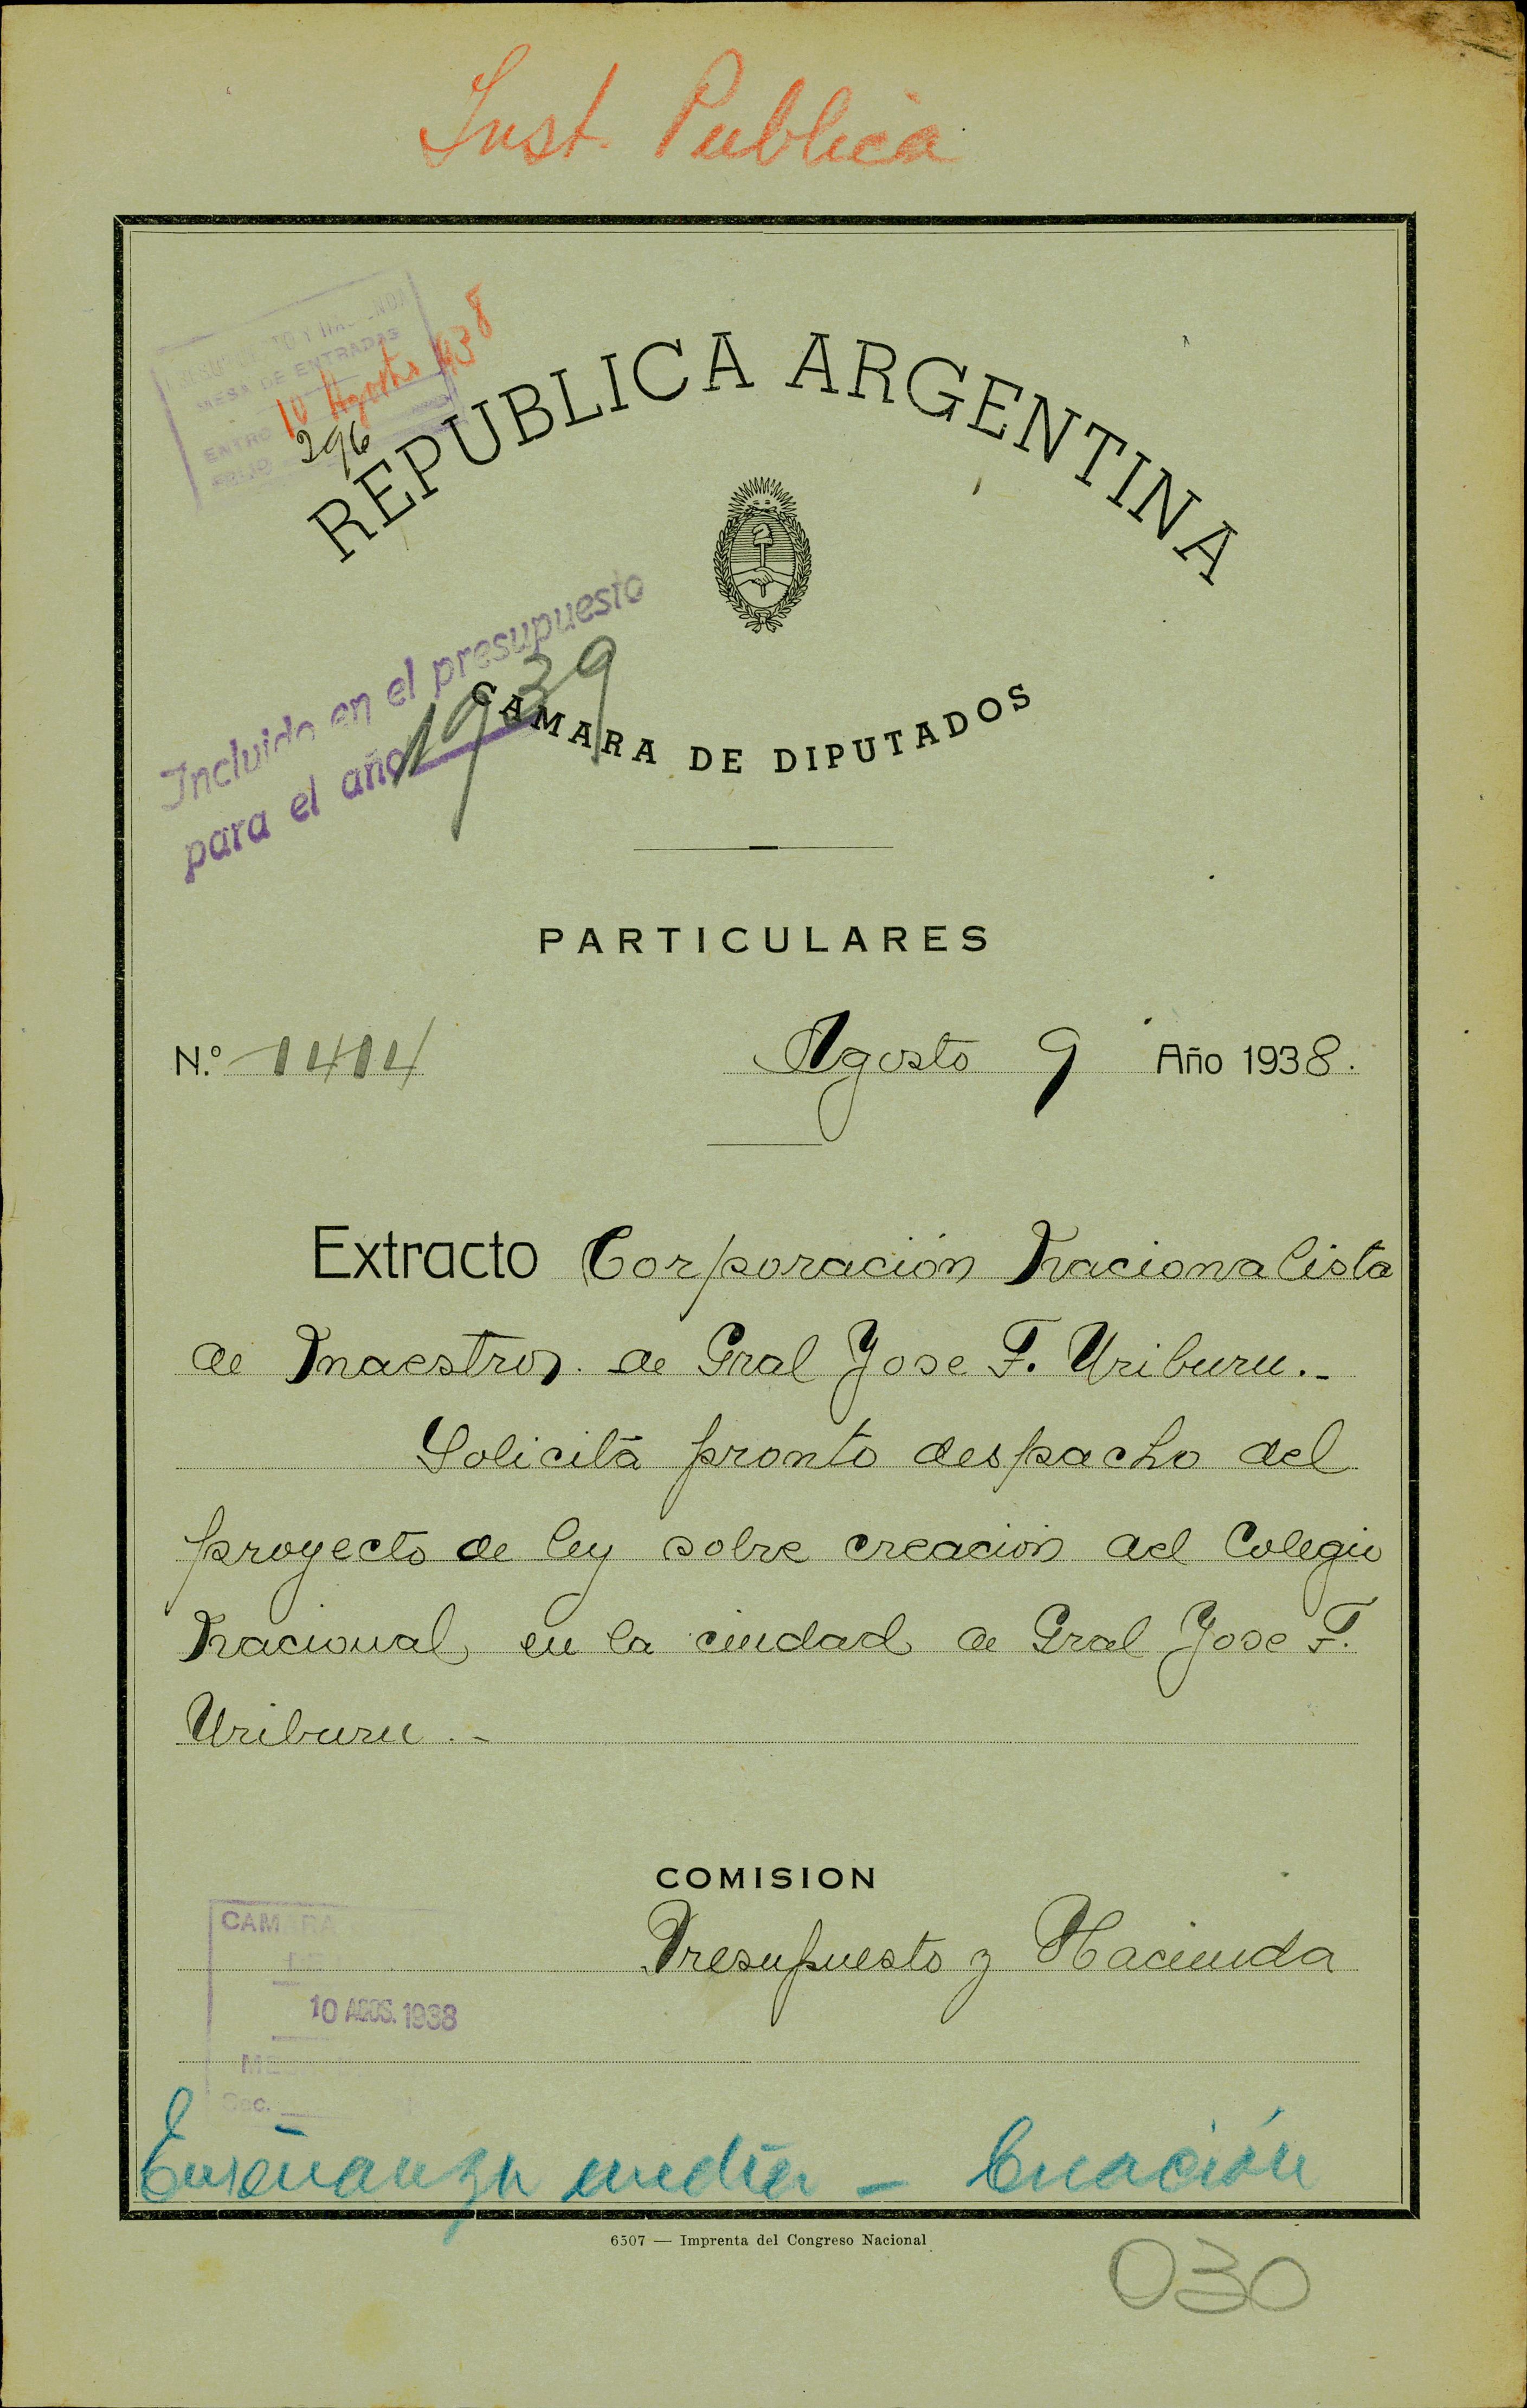 Inst. Publica
MESA DE ENTRADAS
ENTRO 10 Agosto 938
296
REPUBLICA ARGENTINA
Incluido en el presupuesto
para el año 1939
CAMARA DE DIPUTADOS
PARTICULARES
N.º 1414 Agosto 9 Año 1938.
Extracto Corporación Nacionalista
de Maestros de Gral Jose F. Uriburu.-
Solicita pronto despacho del
proyecto de ley sobre creación del Colegio
Nacional en la ciudad de Gral Jose F.
Uriburu.-
COMISION
Presupuesto y Hacienda
CAMARA
10 AGOS. 1938
Sec.
Enseñanza media - Creación
6507 — Imprenta del Congreso Nacional
030